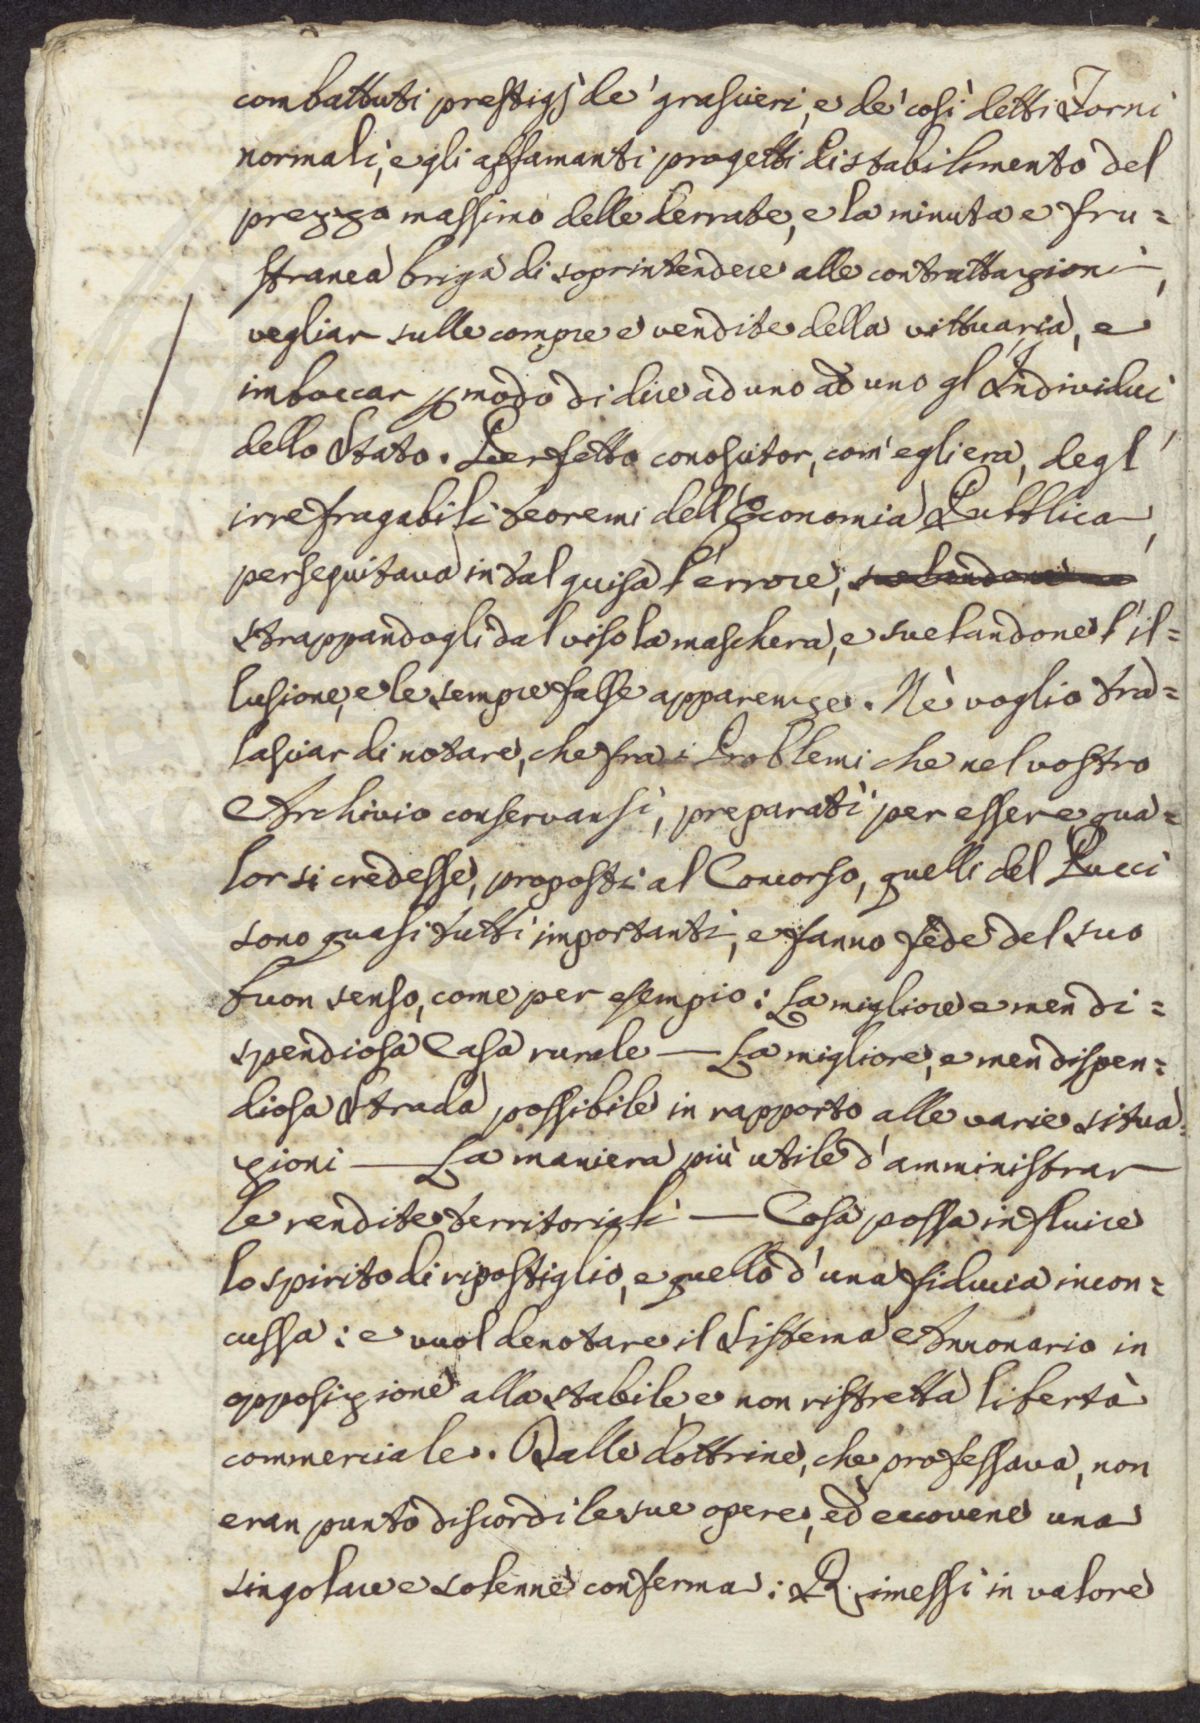 combattuti prestigj de' grascieri, e de' così detti Forni
normali, e gli affamanti progetti di stabilimento del
prezzo massimo delle derrate, e la minuta e fru=
stranea briga di soprintendere alle contrattazioni,
vegliar sulle compre e vendite della vittuaria, e
imboccar p modo di dire ad uno ad uno gl'Individui
dello Stato. Perfetto conoscitor, com'egli era, degl'
irrefragabili teoremi dell'Economia Pubblica,
perseguitava in tal guisa l'errore,
strappandogli dal viso la maschera, e svelandone l'il=
lusione, e le sempre false apparenze. Nè voglio tra=
lasciar di notare, che fra i Problemi che nel vostro
Archivio conservansi, preparati per essere, qua=
lor si credesse, proposti al Concorso, quelli del Pucci
sono quasi tutti importanti, e fanno fede del suo
buon senso, come per esempio: La migliore e men di=
spendiosa Casa rurale — La migliore, e men dispen=
diosa Strada possibile in rapporto alle varie situa=
zioni — La maniera più utile d'amministrar
le rendite territoriali — Cosa possa influire
lo spirito di ripostiglio, e quello d'una fiducia incon=
cussa: e vuol denotare il Sistema Annonario in
opposizione alla stabile e non ristretta libertà
commerciale. Dalle dottrine, che professava, non
eran punto discordi le sue opere, ed eccovene una
singolare e solenne conferma: Rimessi in valore